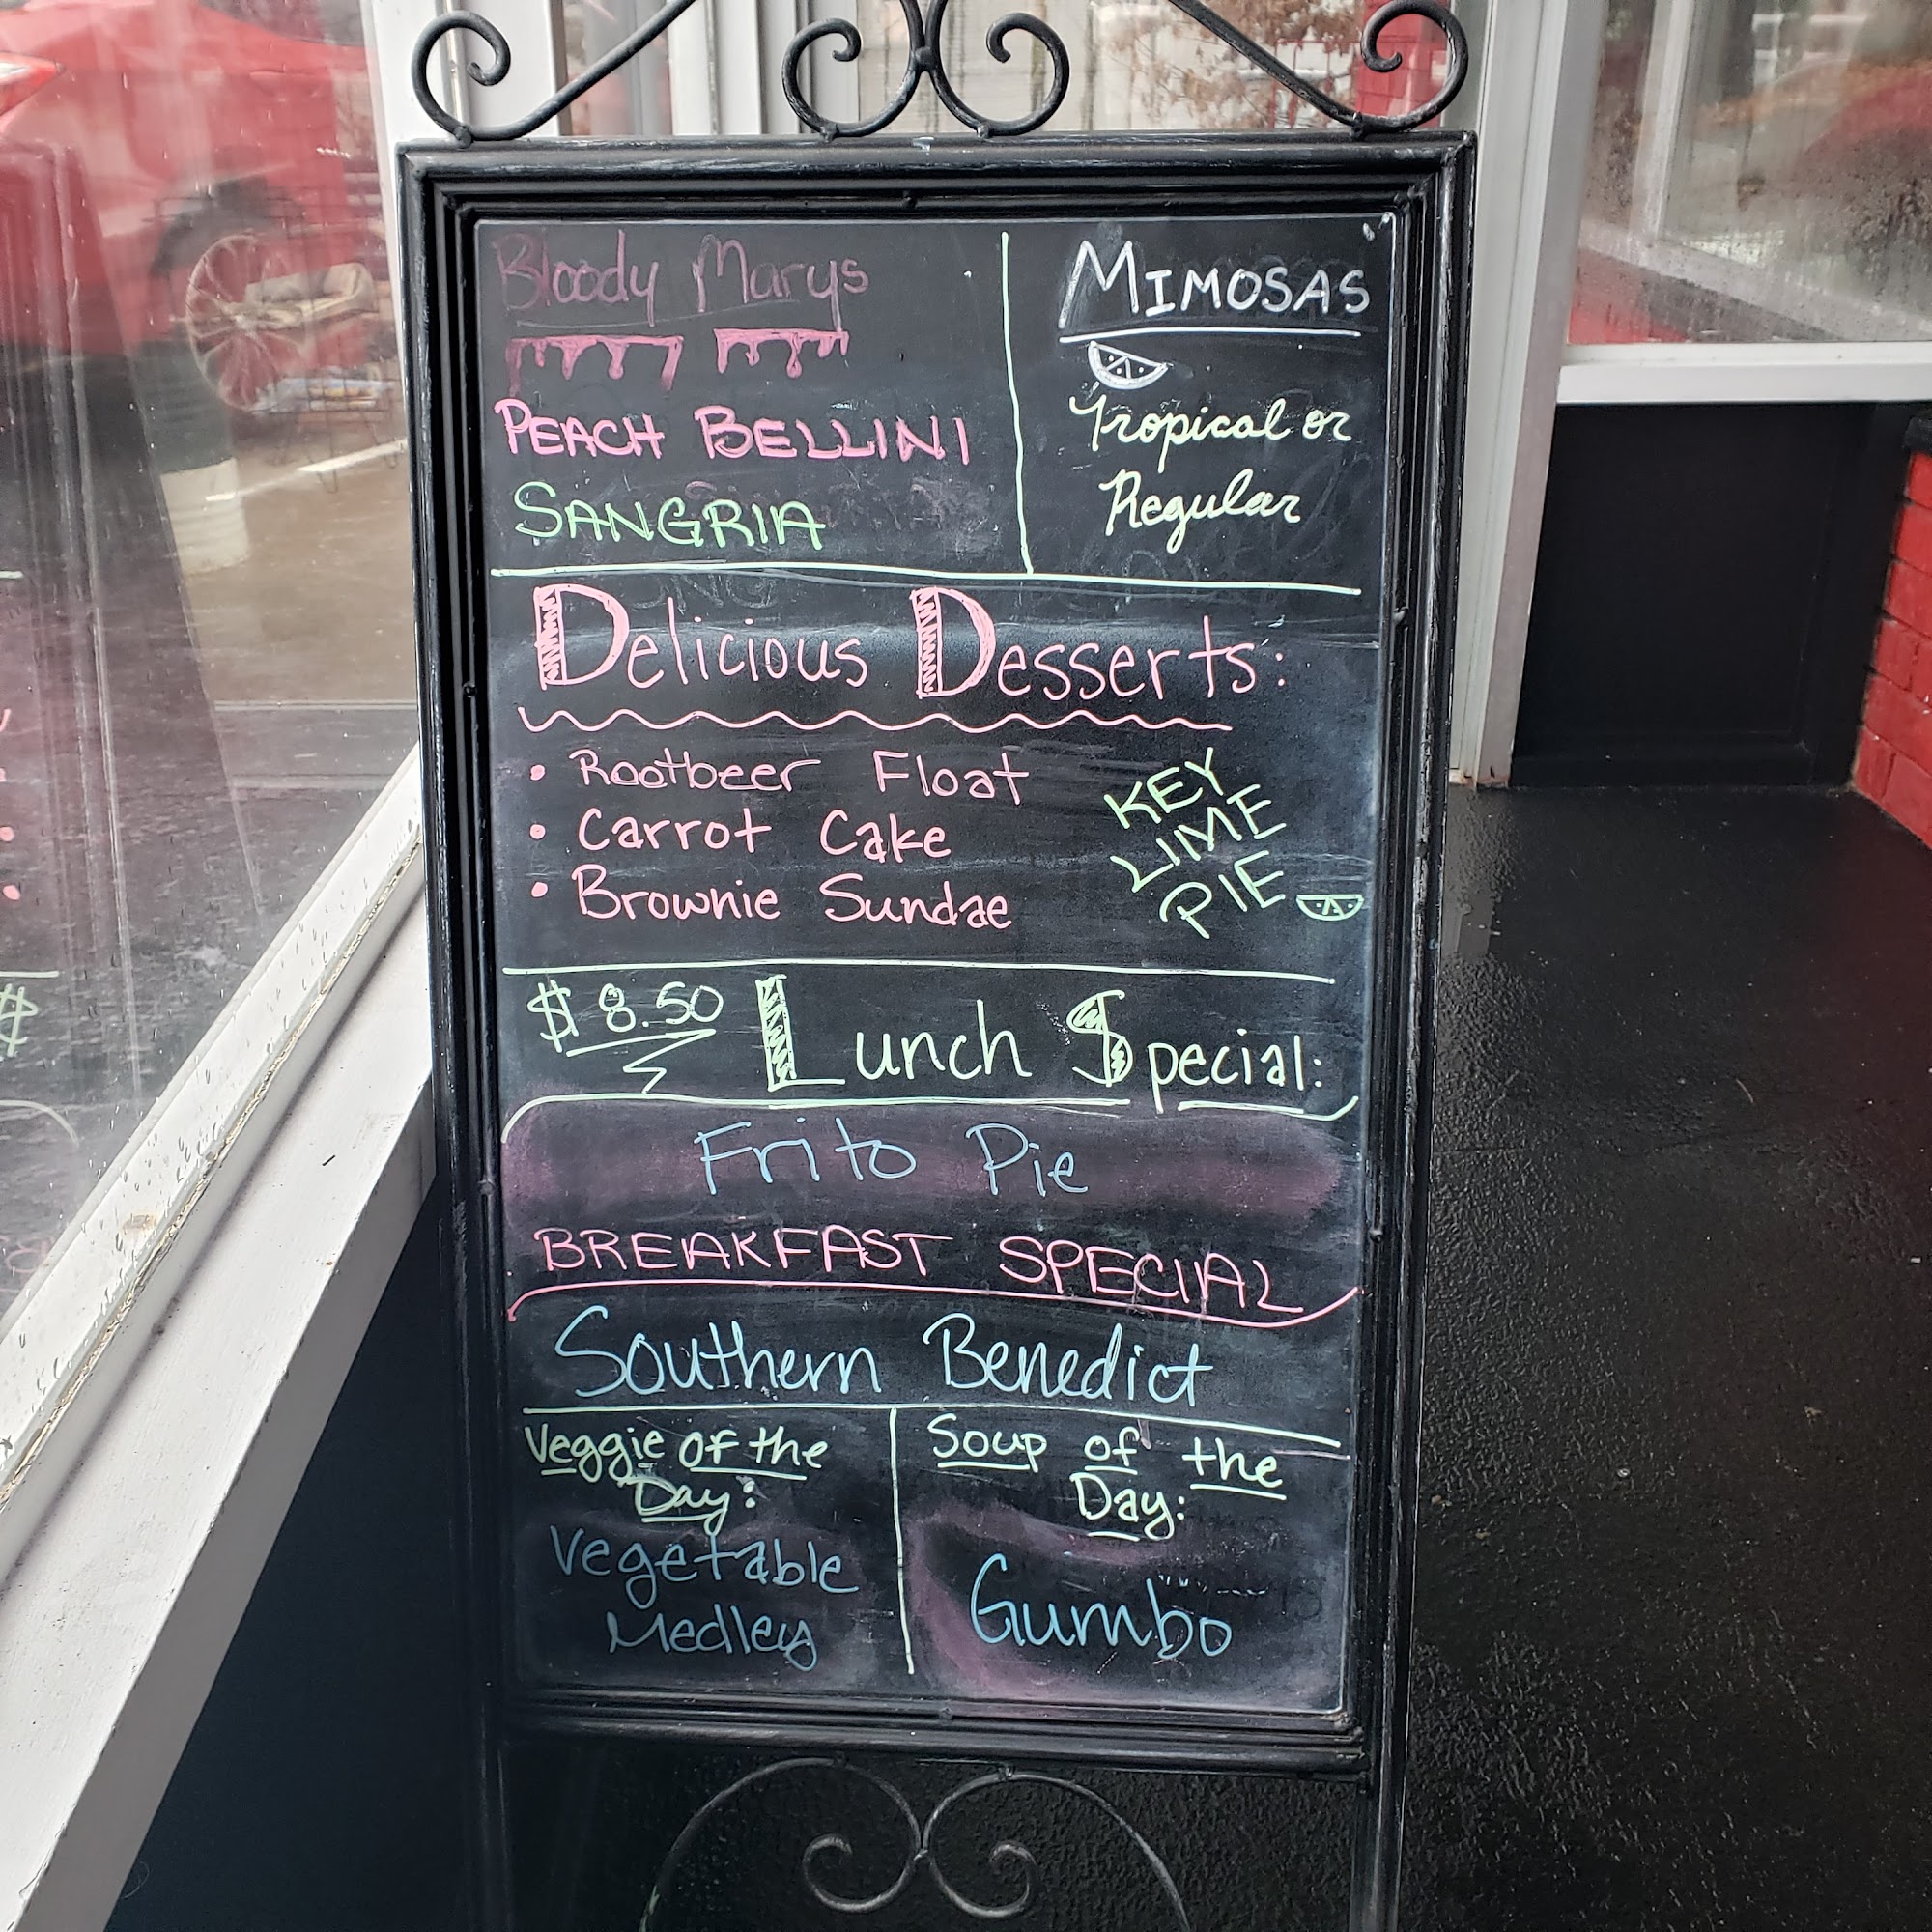 Bloody Marys
PEACH BELLINI
SANGRIA
MIMOSAS
Tropical or
Regular
Delicious Desserts:
• Rootbeer Float
• Carrot Cake
• Brownie Sundae
KEY
LIME
PIE
$8.50 Lunch $pecial:
Frito Pie
BREAKFAST SPECIAL
Southern Benedict
Veggie of the
Day:
Vegetable
Medley
Soup of the
Day:
Gumbo